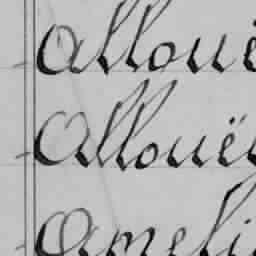 Alloue
Alloue
Ameli